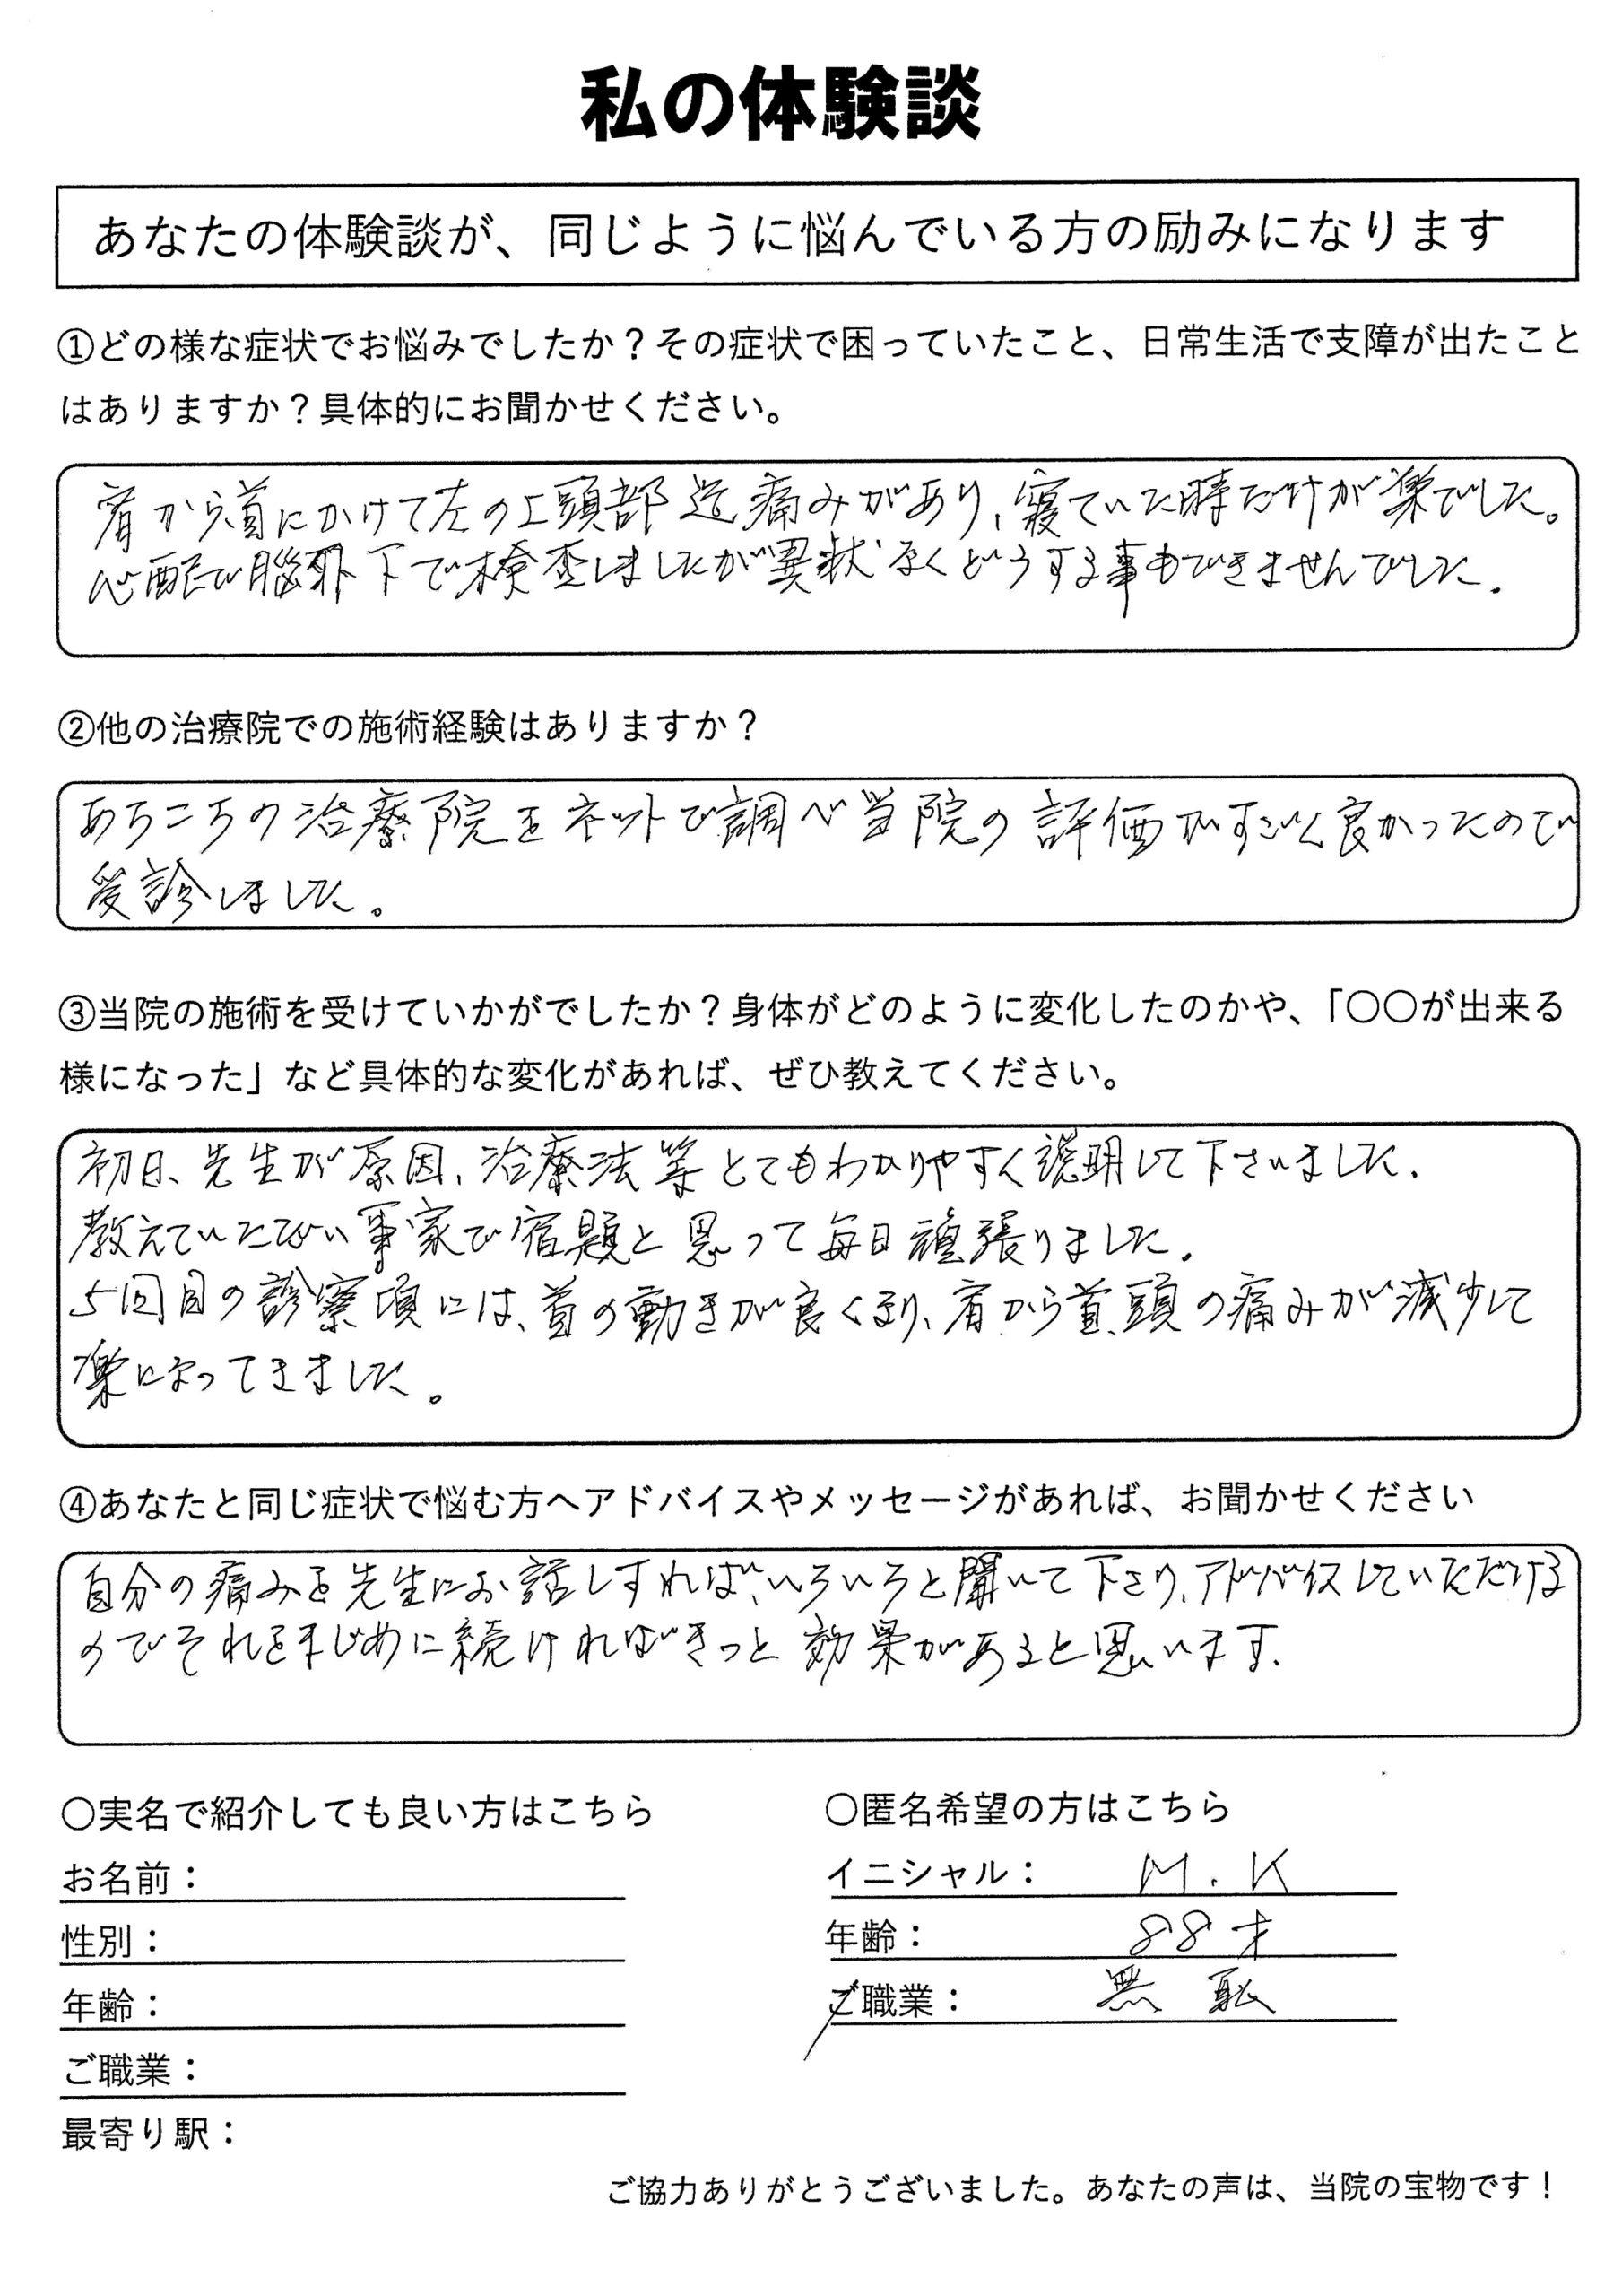 私の体験談
あなたの体験談が、同じように悩んでいる方の励みになります
①どの様な症状でお悩みでしたか？その症状で困っていたこと、日常生活で支障が出たこと
はありますか？具体的にお聞かせください。
肩から首にかけて左の上頭部迄痛みがあり、寝ていた時だけが楽でした。
心配で脳外下で検査しましたが異状なくどうする事もできませんでした。
②他の治療院での施術経験はありますか？
あちこちの治療院をネットで調べ当院の評価がすごく良かったので
受診しました。
③当院の施術を受けていかがでしたか？身体がどのように変化したのかや、「〇〇が出来る
様になった」など具体的な変化があれば、ぜひ教えてください。
初日、先生が原因、治療法等とてもわかりやすく説明して下さいました。
教えていただい事家で宿題と思って毎日頑張りました。
5回目の診察頃には、首の動きが良くなり、肩から首、頭の痛みが減少して
楽になってきました。
④あなたと同じ症状で悩む方へアドバイスやメッセージがあれば、お聞かせください
自分の痛みを先生にお話しすれば、いろいろと聞いて下さり、アドバイスしていただける
のでそれをまじめに続ければきっと効果があると思います。
〇実名で紹介しても良い方はこちら
お名前：
性別：
年齢：
ご職業：
最寄り駅：
〇匿名希望の方はこちら
イニシャル： M.K
年齢： 88才
ご職業： 無職
ご協力ありがとうございました。あなたの声は、当院の宝物です！